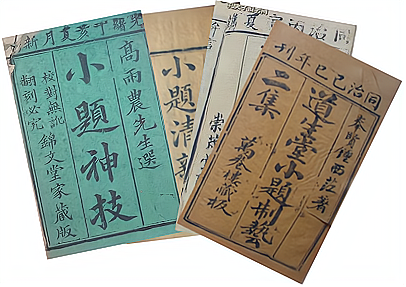 光緒丁亥夏月新
高雨農先生選
小題神技
校對無訛
翻刻必究
錦文堂家藏版
小題清新
同治
崇
同治己巳年刊
秦賢鍾西莊著
道生堂小題制藝
二集
萬卷樓藏板